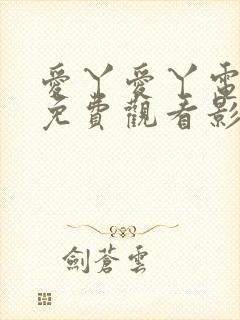 愛丫愛丫電
免費觀看影
劍蒼雲